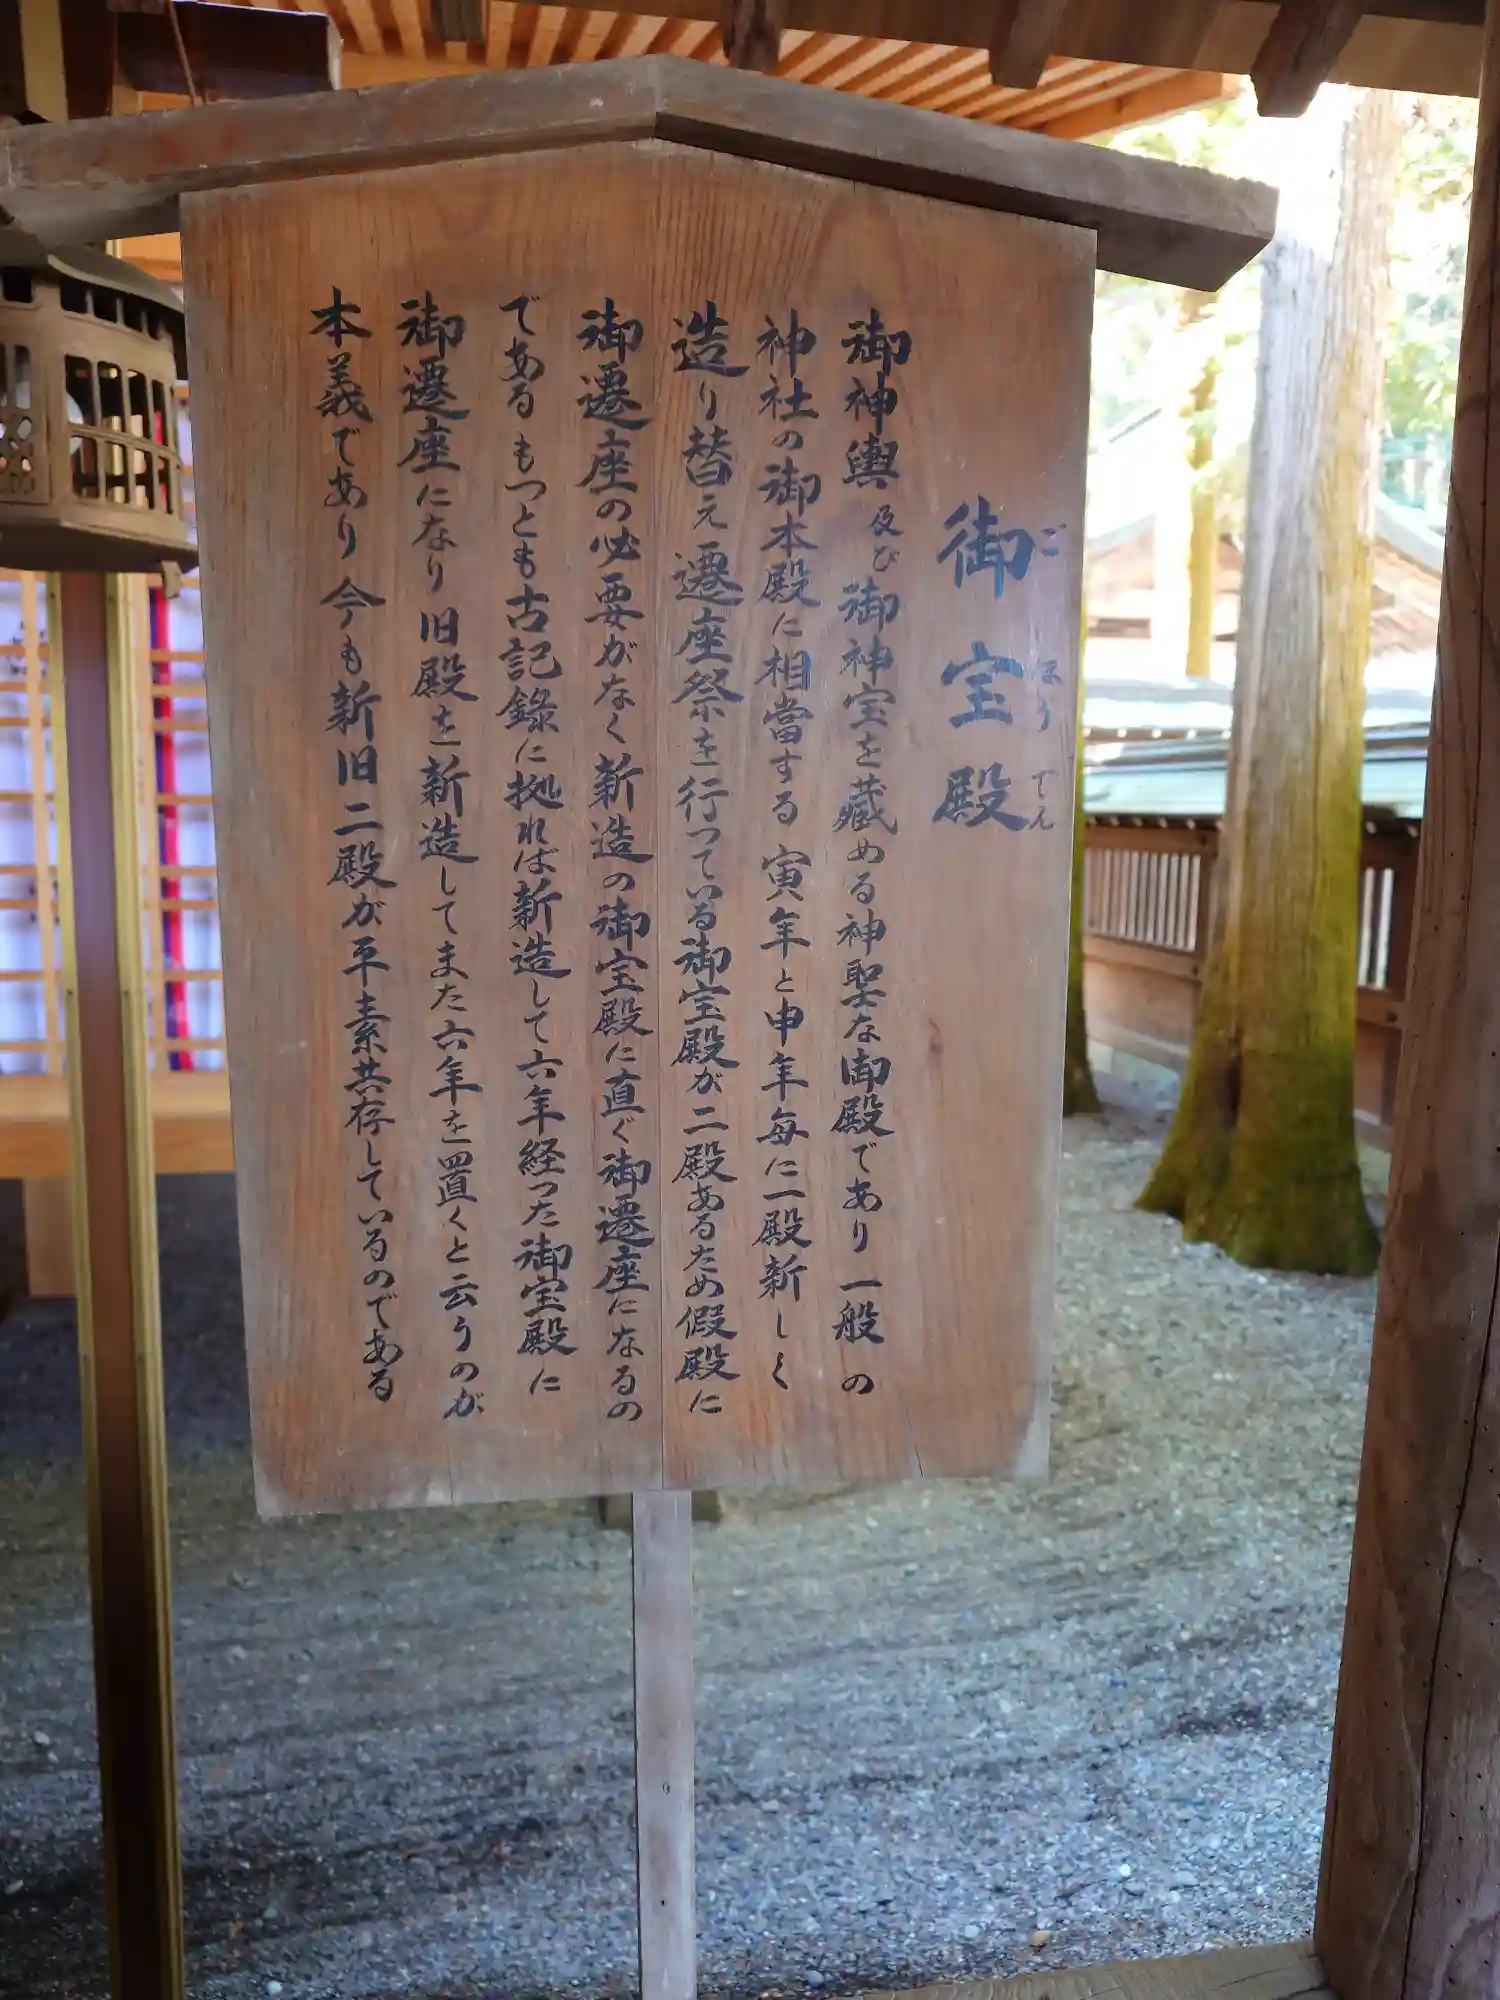 御宝殿
ごほうでん
御神輿及び御神宝を藏める神聖な御殿であり一般の
神社の御本殿に相當する 寅年と申年毎に一殿新しく
造り替え遷座祭を行っている御宝殿が二殿あるため假殿に
御遷座の必要がなく新造の御宝殿に直ぐ御遷座になるの
であるもっとも古記錄に拠れば新造して六年経った御宝殿に
御遷座になり旧殿を新造してまた六年を置くと云うのが
本義であり今も新旧二殿が平素共存しているのである